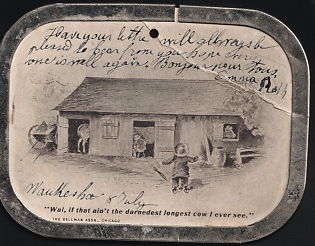 Have your letter will allways be
pleased to hear from you hope every
one is well again. Bonjour pour tous.
Emma
Waukesha 8 July
"Wal, if that ain't the darnedest longest cow I ever see."
THE BELLMAN ASSN., CHICAGO